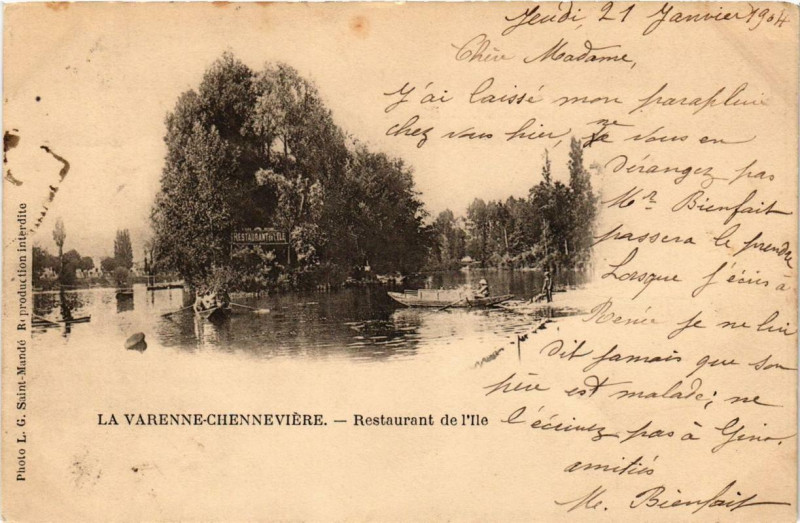 Jeudi, 21 Janvier 1904
Chère Madame,
J'ai laissé mon parapluie
chez vous hier, ne vous en
dérangez pas
Mr. Bienfait
passera le prendre
Lorsque j'écris à
Renée je ne lui
dit jamais que son
père est malade; ne
l'écrivez pas à Gino.
amitiés
Me. Bienfait
RESTAURANT DE L'ILE
LA VARENNE-CHENNEVIÈRE. — Restaurant de l'Ile
Photo L. G. Saint-Mandé Reproduction interdite